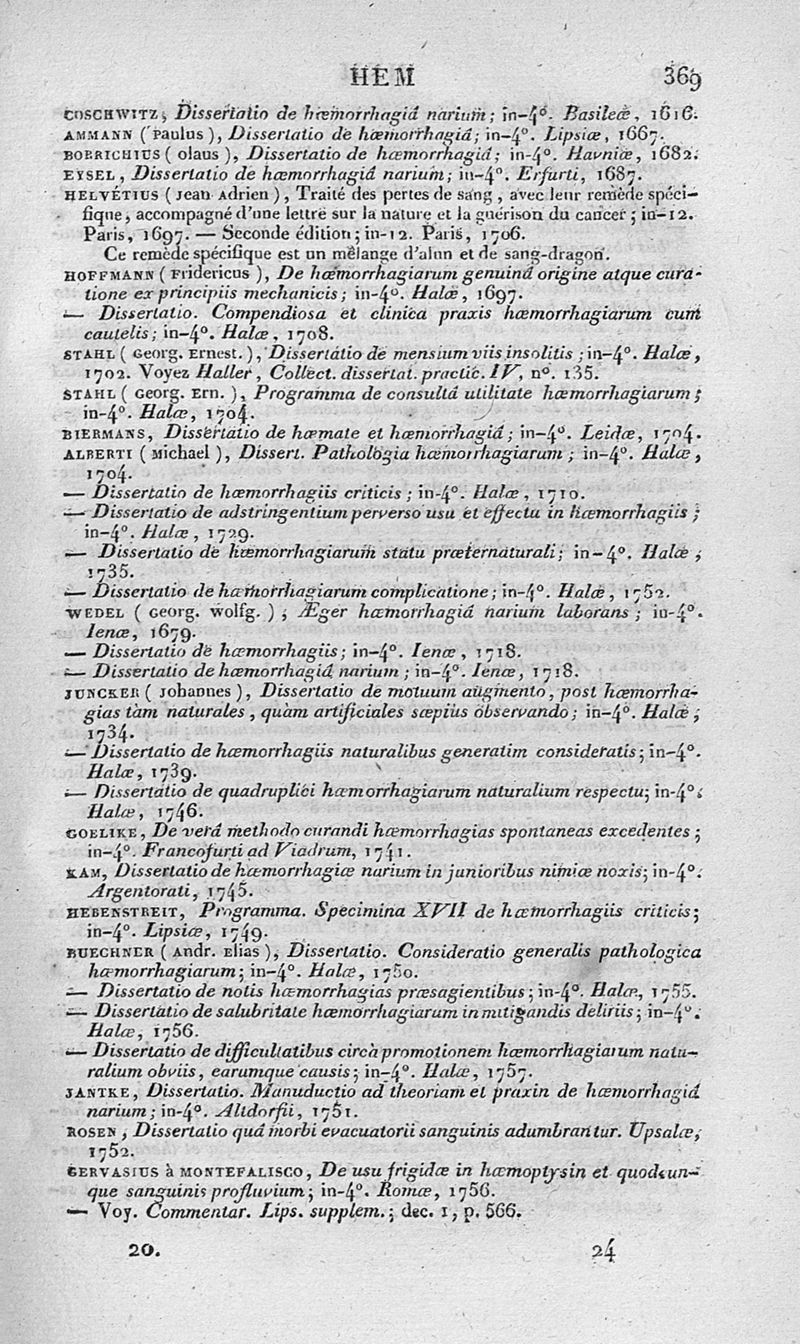 HEM 369
COSCHWITZ, Dissertatio de hæmorrhagiâ narium; in-4°. Basileæ, 1616.
AMMANN (Paulus), Dissertatio de hæmorrhagiâ; in-4°. Lipsiæ, 1667.
BORRICHIUS (olaus), Dissertatio de hæmorrhagiâ; in-4°. Havniæ, 1682.
EYSEL, Dissertatio de hæmorrhagiâ narium; in-4°. Erfurti, 1687.
HELVÉTIUS (Jean Adrien), Traité des pertes de sang, avec leur remède spéci-
fique, accompagné d'une lettre sur la nature et la guérison du cancer; in-12.
Paris, 1697. — Seconde édition; in-12. Paris, 1706.
Ce remède spécifique est un mêlange d'alun et de sang-dragon.
HOFFMANN (Fridericus), De hæmorrhagiarum genuinâ origine atque cura-
tione ex principiis mechanicis; in-4°. Halæ, 1697.
— Dissertatio. Compendiosa et clinica praxis hæmorrhagiarum cum
cautelis; in-4°. Halæ, 1708.
STAHL (Georg. Ernest.), Dissertatio de mensium viis insolitis; in-4°. Halæ,
1702. Voyez Haller, Collect. dissertat. practic. IV, n°. 135.
STAHL (Georg. Ern.), Programma de consultâ utilitate hæmorrhagiarum;
in-4°. Halæ, 1704.
BIERMANS, Dissertatio de hæmate et hæmorrhagiâ; in-4°. Leidæ, 1704.
ALBERTI (Michael), Dissert. Pathologia hæmorrhagiarum; in-4°. Halæ,
1704.
— Dissertatio de hæmorrhagiis criticis; in-4°. Halæ, 1710.
— Dissertatio de adstringentium perverso usu et effectu in hæmorrhagiis;
in-4°. Halæ, 1729.
— Dissertatio de hæmorrhagiarum statu præternaturali; in-4°. Halæ,
1735.
— Dissertatio de hæmorrhagiarum complicatione; in-4°. Halæ, 1752.
WEDEL (Georg. Wolfg.), Æger hæmorrhagiâ narium laborans; in-4°.
Ienæ, 1679.
— Dissertatio de hæmorrhagiis; in-4°. Ienæ, 1718.
— Dissertatio de hæmorrhagiâ narium; in-4°. Ienæ, 1718.
JUNCKER (Johannes), Dissertatio de motuum augmento, post hæmorrha-
gias tàm naturales, quàm artificiales sæpiùs observando; in-4°. Halæ,
1734.
— Dissertatio de hæmorrhagiis naturalibus generatim consideratis; in-4°.
Halæ, 1739.
— Dissertatio de quadruplici hæmorrhagiarum naturalium respectu; in-4°.
Halæ, 1746.
GOELIKE, De verâ methodo curandi hæmorrhagias spontaneas excedentes;
in-4°. Francofurti ad Viadrum, 1741.
KAM, Dissertatio de hæmorrhagiæ narium in junioribus nimiæ noxis; in-4°.
Argentorati, 1745.
HEBENSTREIT, Programma. Specimina XVII de hæmorrhagiis criticis;
in-4°. Lipsiæ, 1749.
BUECHNER (Andr. Elias), Dissertatio. Consideratio generalis pathologica
hæmorrhagiarum; in-4°. Halæ, 1750.
— Dissertatio de notis hæmorrhagias præsagientibus; in-4°. Halæ, 1755.
— Dissertatio de salubritate hæmorrhagiarum in mitigandis deliriis; in-4°.
Halæ, 1756.
— Dissertatio de difficultatibus circà promotionem hæmorrhagiarum natu-
ralium obviis, earumque causis; in-4°. Halæ, 1757.
JANTKE, Dissertatio. Manuductio ad theoriam et praxin de hæmorrhagiâ
narium; in-4°. Altdorfii, 1751.
ROSEN, Dissertatio quâ morbi evacuatorii sanguinis adumbrantur. Upsalæ,
1752.
GERVASIUS à MONTEFALISCO, De usu frigidæ in hæmoptysin et quodcun-
que sanguinis profluvium; in-4°. Romæ, 1756.
— Voy. Commentar. Lips. supplem.; dec. 1, p. 566.
20. 24